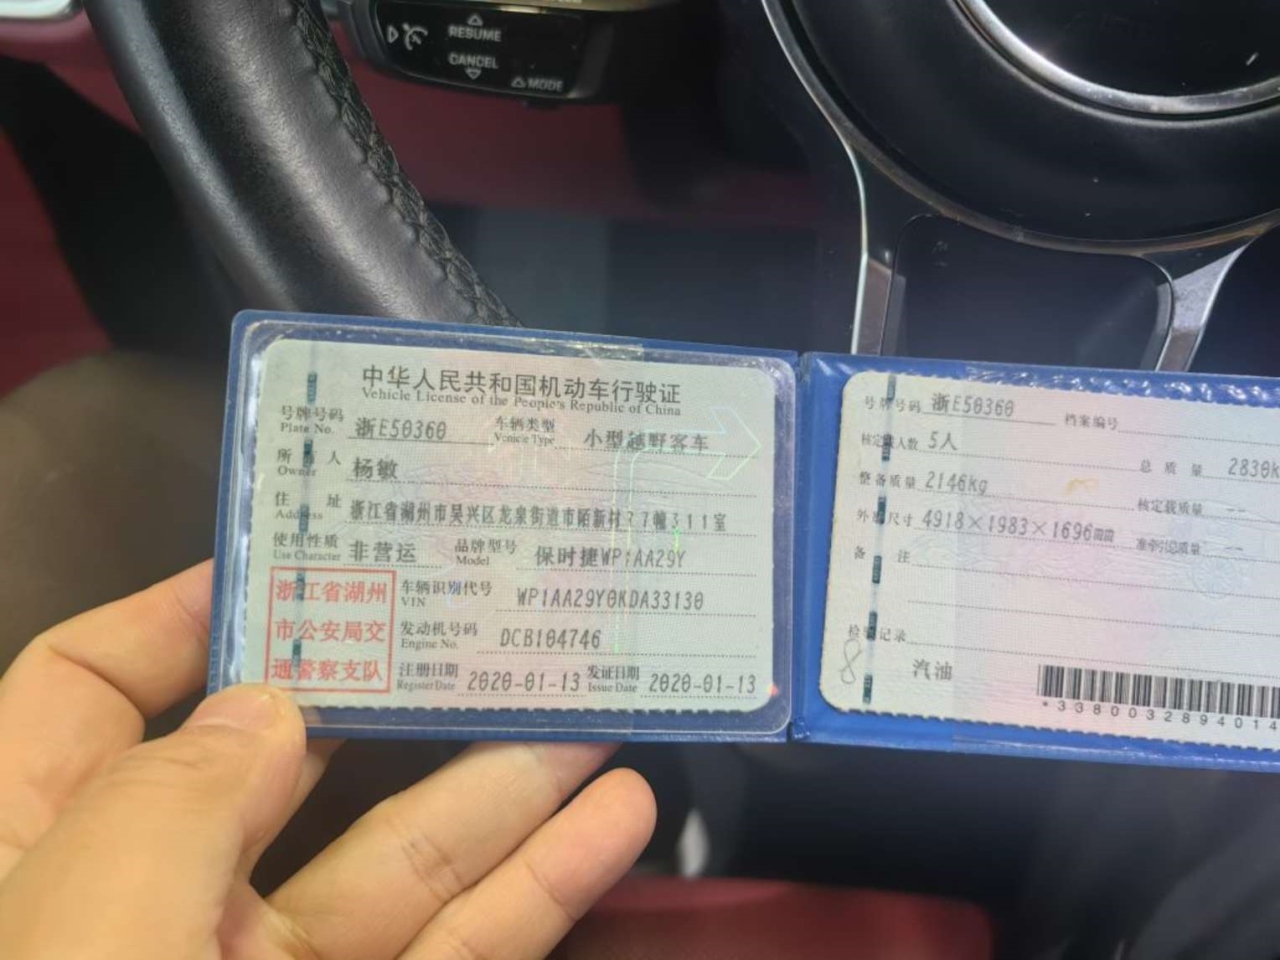 RESUME
CANCEL
MODE
中华人民共和国机动车行驶证
Vehicle License of the People's Republic of China
号牌号码 浙E50360 车辆类型 小型越野客车
Plate No. Vehicle Type
所 人 杨敏
Owner
住 址 浙江省湖州市吴兴区龙泉街道市陌新村37幢311室
Address
使用性质 非营运 品牌型号 保时捷WP1AA29Y
Use Character Model
浙江省湖州
市公安局交
通警察支队
车辆识别代号 WP1AA29Y0KDA33130
VIN
发动机号码 DCB104746
Engine No.
注册日期 2020-01-13 发证日期 2020-01-13
Register Date Issue Date
号牌号码 浙E50360 档案编号
核定载人数 5人 总质量 2830k
整备质量 2146kg 核定载质量 --
外廓尺寸 4918×1983×1696mm 准牵引总质量 --
备 注
检验记录
8 汽油
*3380032894014